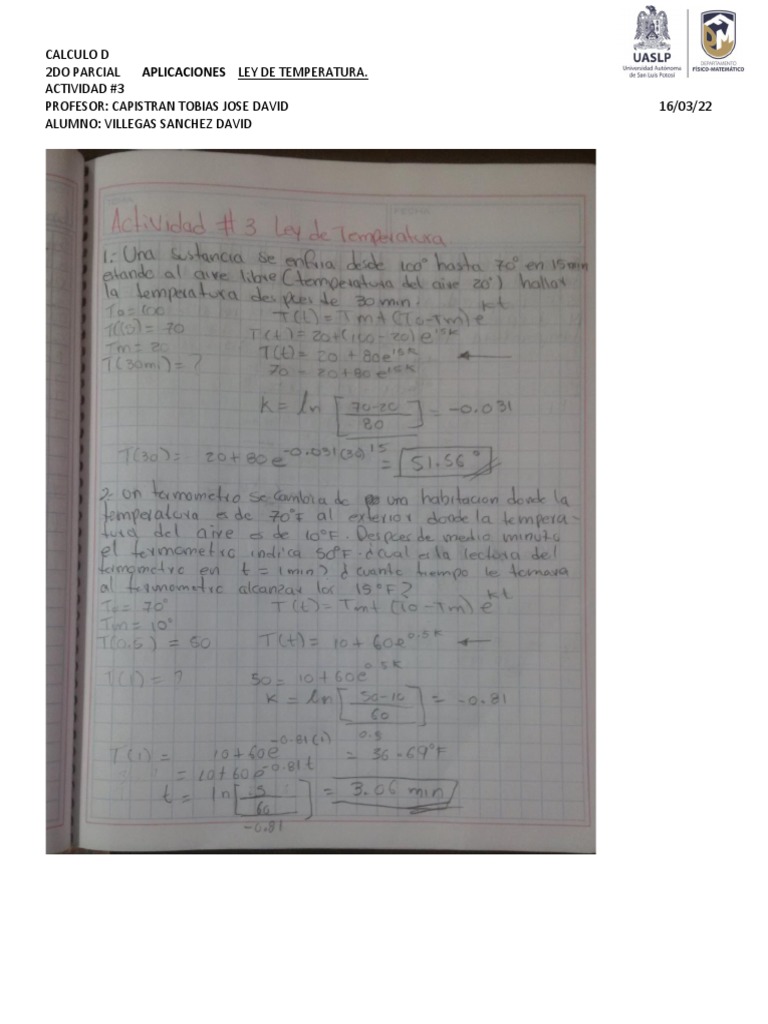 UASLP
Universidad Autónoma
de San Luis Potosí
DEPARTAMENTO
FÍSICO-MATEMÁTICO
CALCULO D
2DO PARCIAL APLICACIONES LEY DE TEMPERATURA.
ACTIVIDAD #3
PROFESOR: CAPISTRAN TOBIAS JOSE DAVID 16/03/22
ALUMNO: VILLEGAS SANCHEZ DAVID
Actividad # 3 Ley de Temperatura
1.- Una sustancia se enfria desde 100° hasta 70° en 15 min
etando al aire libre (temperatura del aire 20°) hallar
la temperatura despues de 30 min.
To = 100 T(t) = Tm + (To - Tm) e^kt
T(15) = 70 T(t) = 20 + (100 - 20) e^15k
Tm = 20 T(t) = 20 + 80e^15k ←
T(30mi) = ? 70 = 20 + 80 e^15k
k = ln [70-20/80] = -0.031
15
T(30) = 20 + 80e^-0.031(30) = 51.56°
2.- Un termometro se cambia de una habitacion donde la
temperatura es de 70°F al exterior donde la tempera-
tura del aire es de 10°F. Despues de medio minuto
el termometro indica 50°F. ¿cual es la lectora del
termometro en t = 1 min) ¿ cuanto tiempo le tomara
al termometro alcanzar los 15°F?
To = 70° T(t) = Tm + (To - Tm) e^kt
Tm = 10°
T(0.5) = 50 T(t) = 10 + 60e^0.5k ←
T(1) = ? 50 = 10 + 60e^0.5k
k = ln [50-10/60] = -0.81
0.5
T(1) = 10 + 60e^-0.81(1) = 36.69°F
= 10 + 60 e^-0.81t
t = ln [5/60] = 3.06 min
-0.81